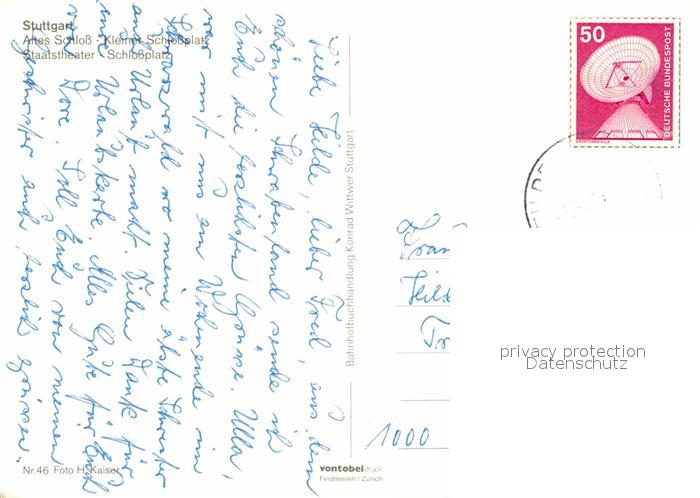 Stuttgart
Altes Schloß - Kleiner Schloßplatz
Staatstheater - Schloßplatz
Liebe Hilde, lieber Fred, aus dem
schönen Schwabenland sende ich
Euch die herzlichsten Grüsse. Ulla,
war mit uns am Wochenende im
Schwarzwald wo meine älteste Schwester
auf Urlaub macht. Vielen Dank für
eure Urlaubskarte. Alles Gute für Euch
von Dore. Soll Euch von meinen
Geschwister auch herzlich grüssen.
Bahnhofbuchhandlung Konrad Wittwer Stuttgart
50
DEUTSCHE BUNDESPOST
ERDEFUNKSTELLE
Frau
Hild
1000
privacy protection
Datenschutz
Nr.46 Foto H. Kaiser
vontobeldruck
Feldmeilen / Zürich